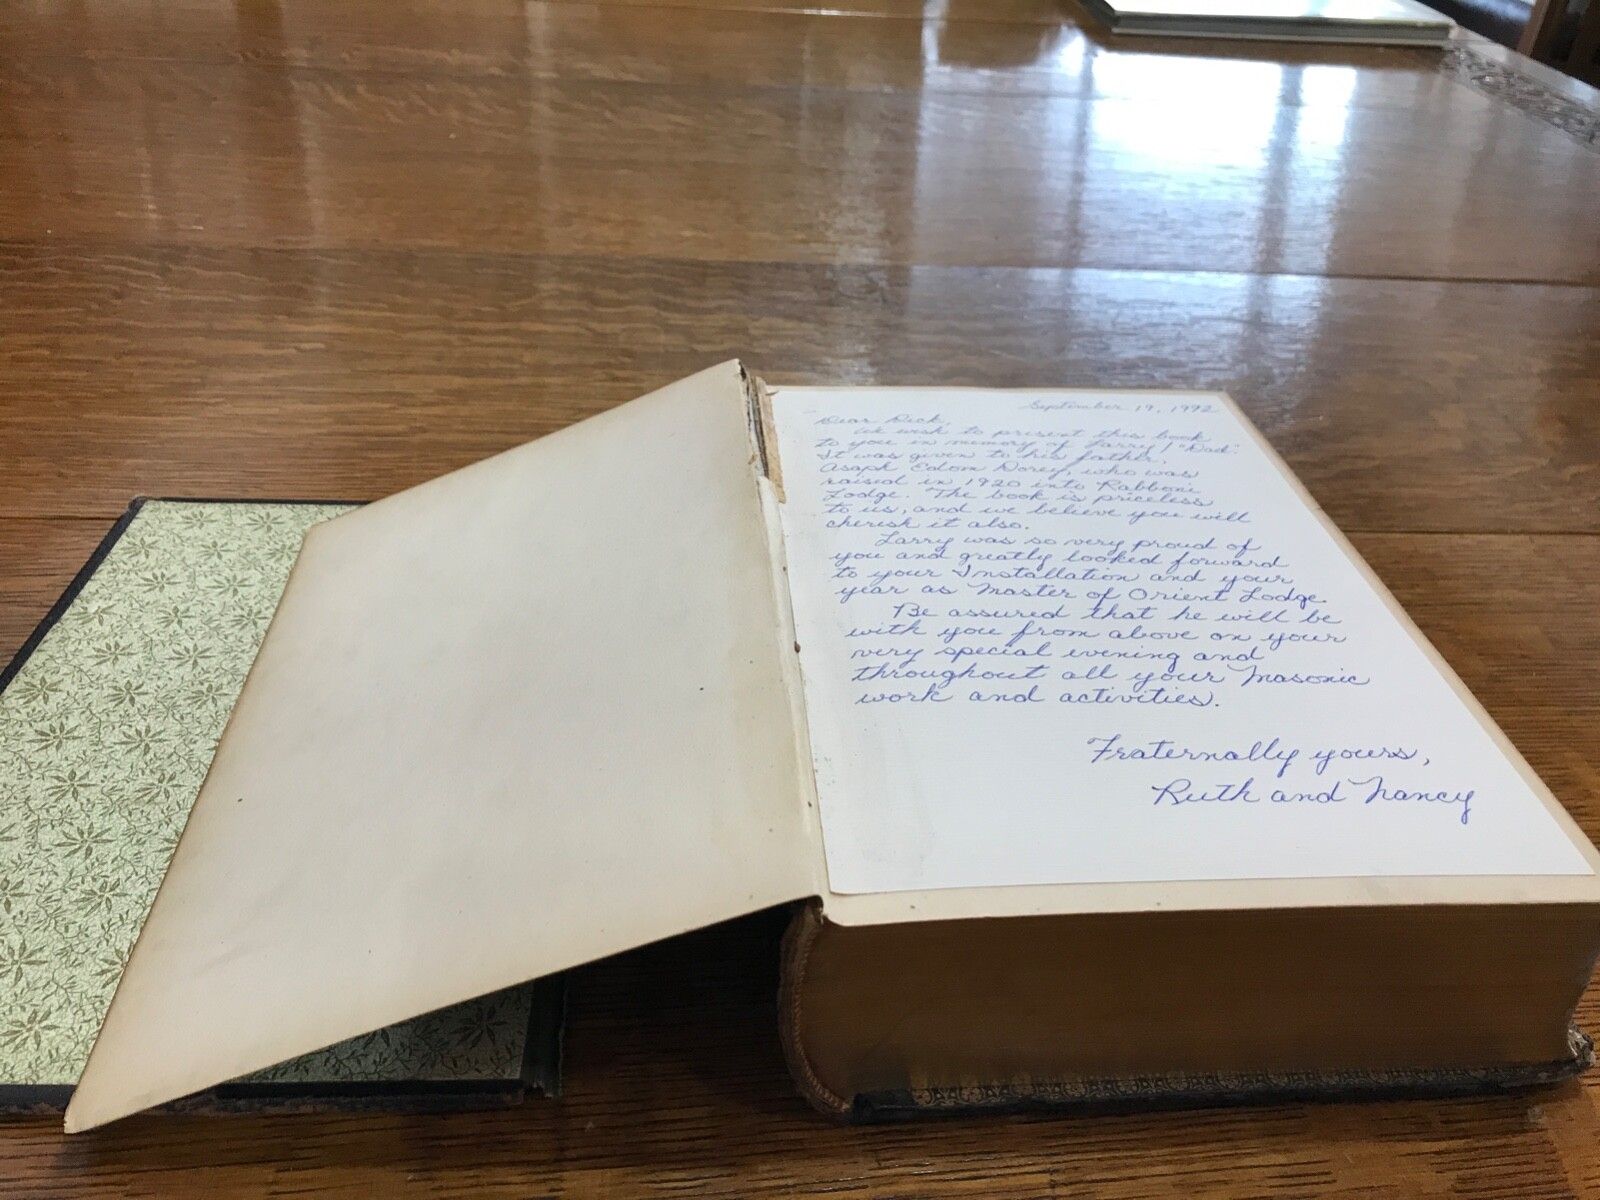 September 19, 1992
Dear Dick,
We wish to present this book
to you in memory of Larry / "Dad".
It was given to his father,
Asaph Edom Dorey, who was
raised in 1920 into Rabboni
Lodge. The book is priceless
to us, and we believe you will
cherish it also.
Larry was so very proud of
you and greatly looked forward
to your Installation and your
year as Master of Orient Lodge.
Be assured that he will be
with you from above on your
very special evening and
throughout all your Masonic
work and activities.
Fraternally yours,
Ruth and Nancy